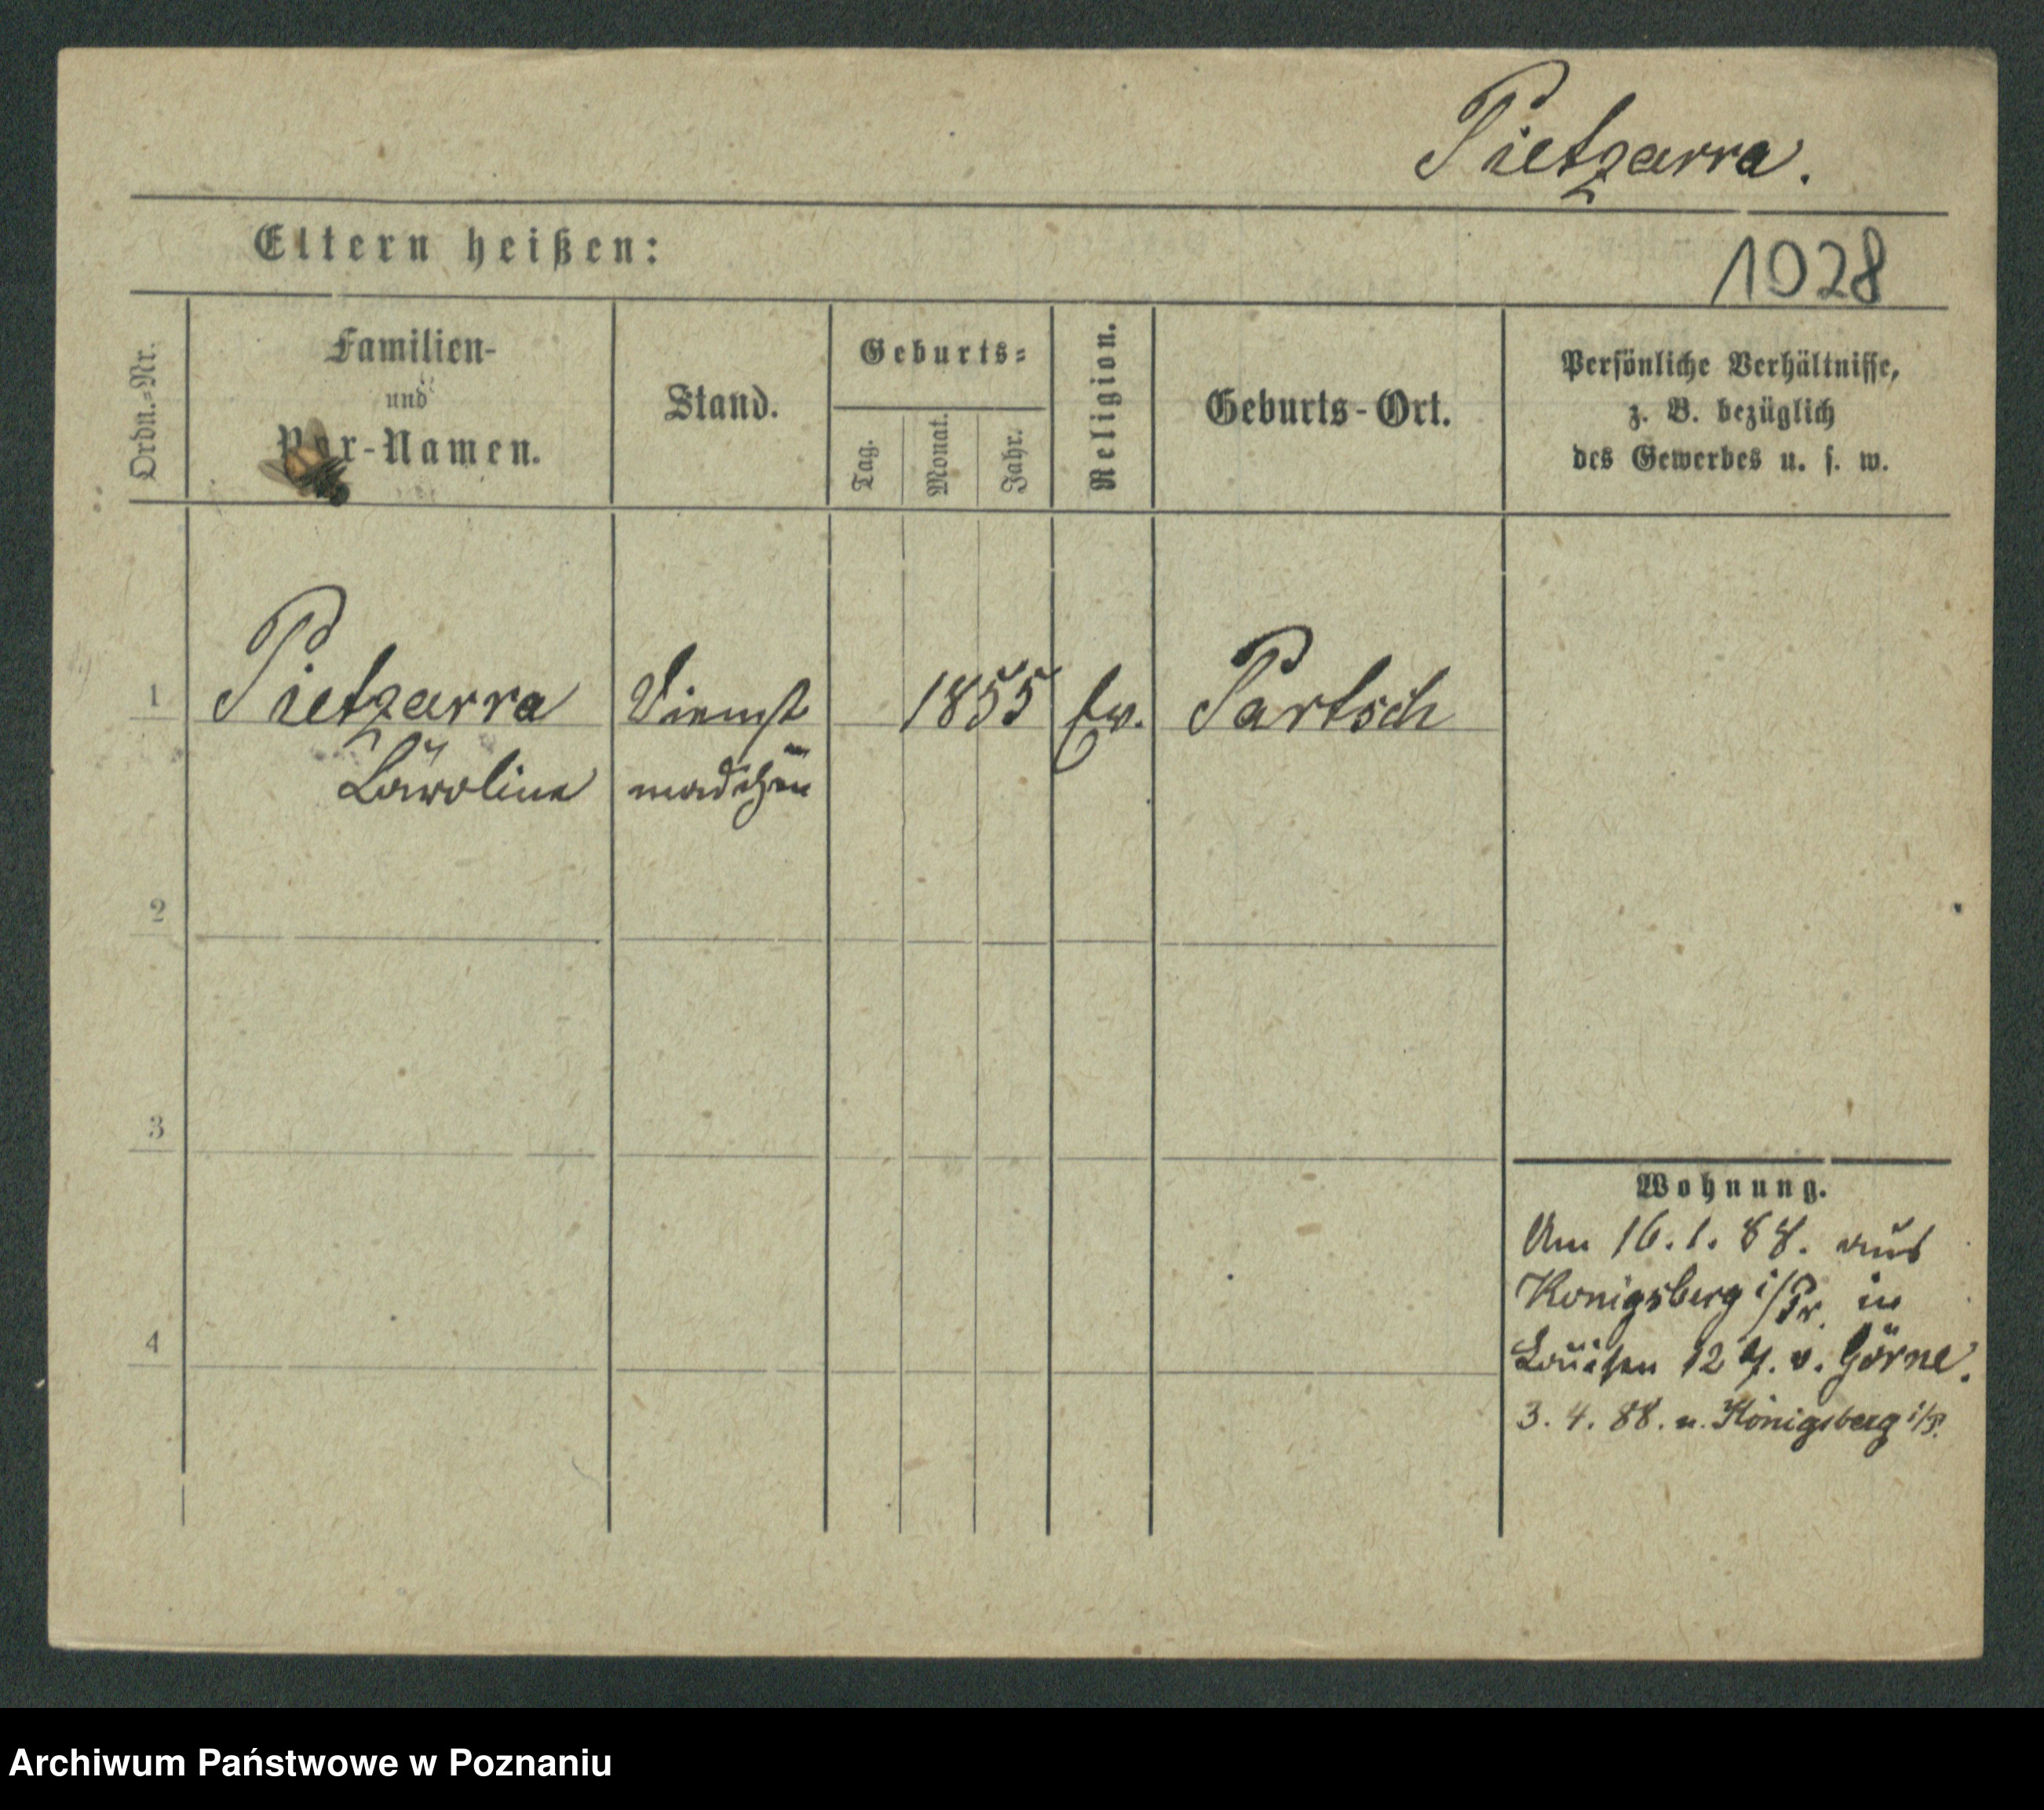 Pietzarra.
Eltern heißen:
1028
Ordn.-Nr.
Familien-
und
Vor-Namen.
Stand.
Geburts-
Tag.
Monat.
Jahr.
Religion.
Geburts-Ort.
Persönliche Verhältnisse,
z. B. bezüglich
des Gewerbes u. s. w.
1 Pietzarra Dienst 1855 Ev. Partsch
Karoline mädchen
2
3
4
Wohnung.
Am 16. 1. 88. aus
Königsberg i/Pr. in
Louisen 12 b. v. Görne.
3. 4. 88. n. Königsberg i/P.
Archiwum Państwowe w Poznaniu